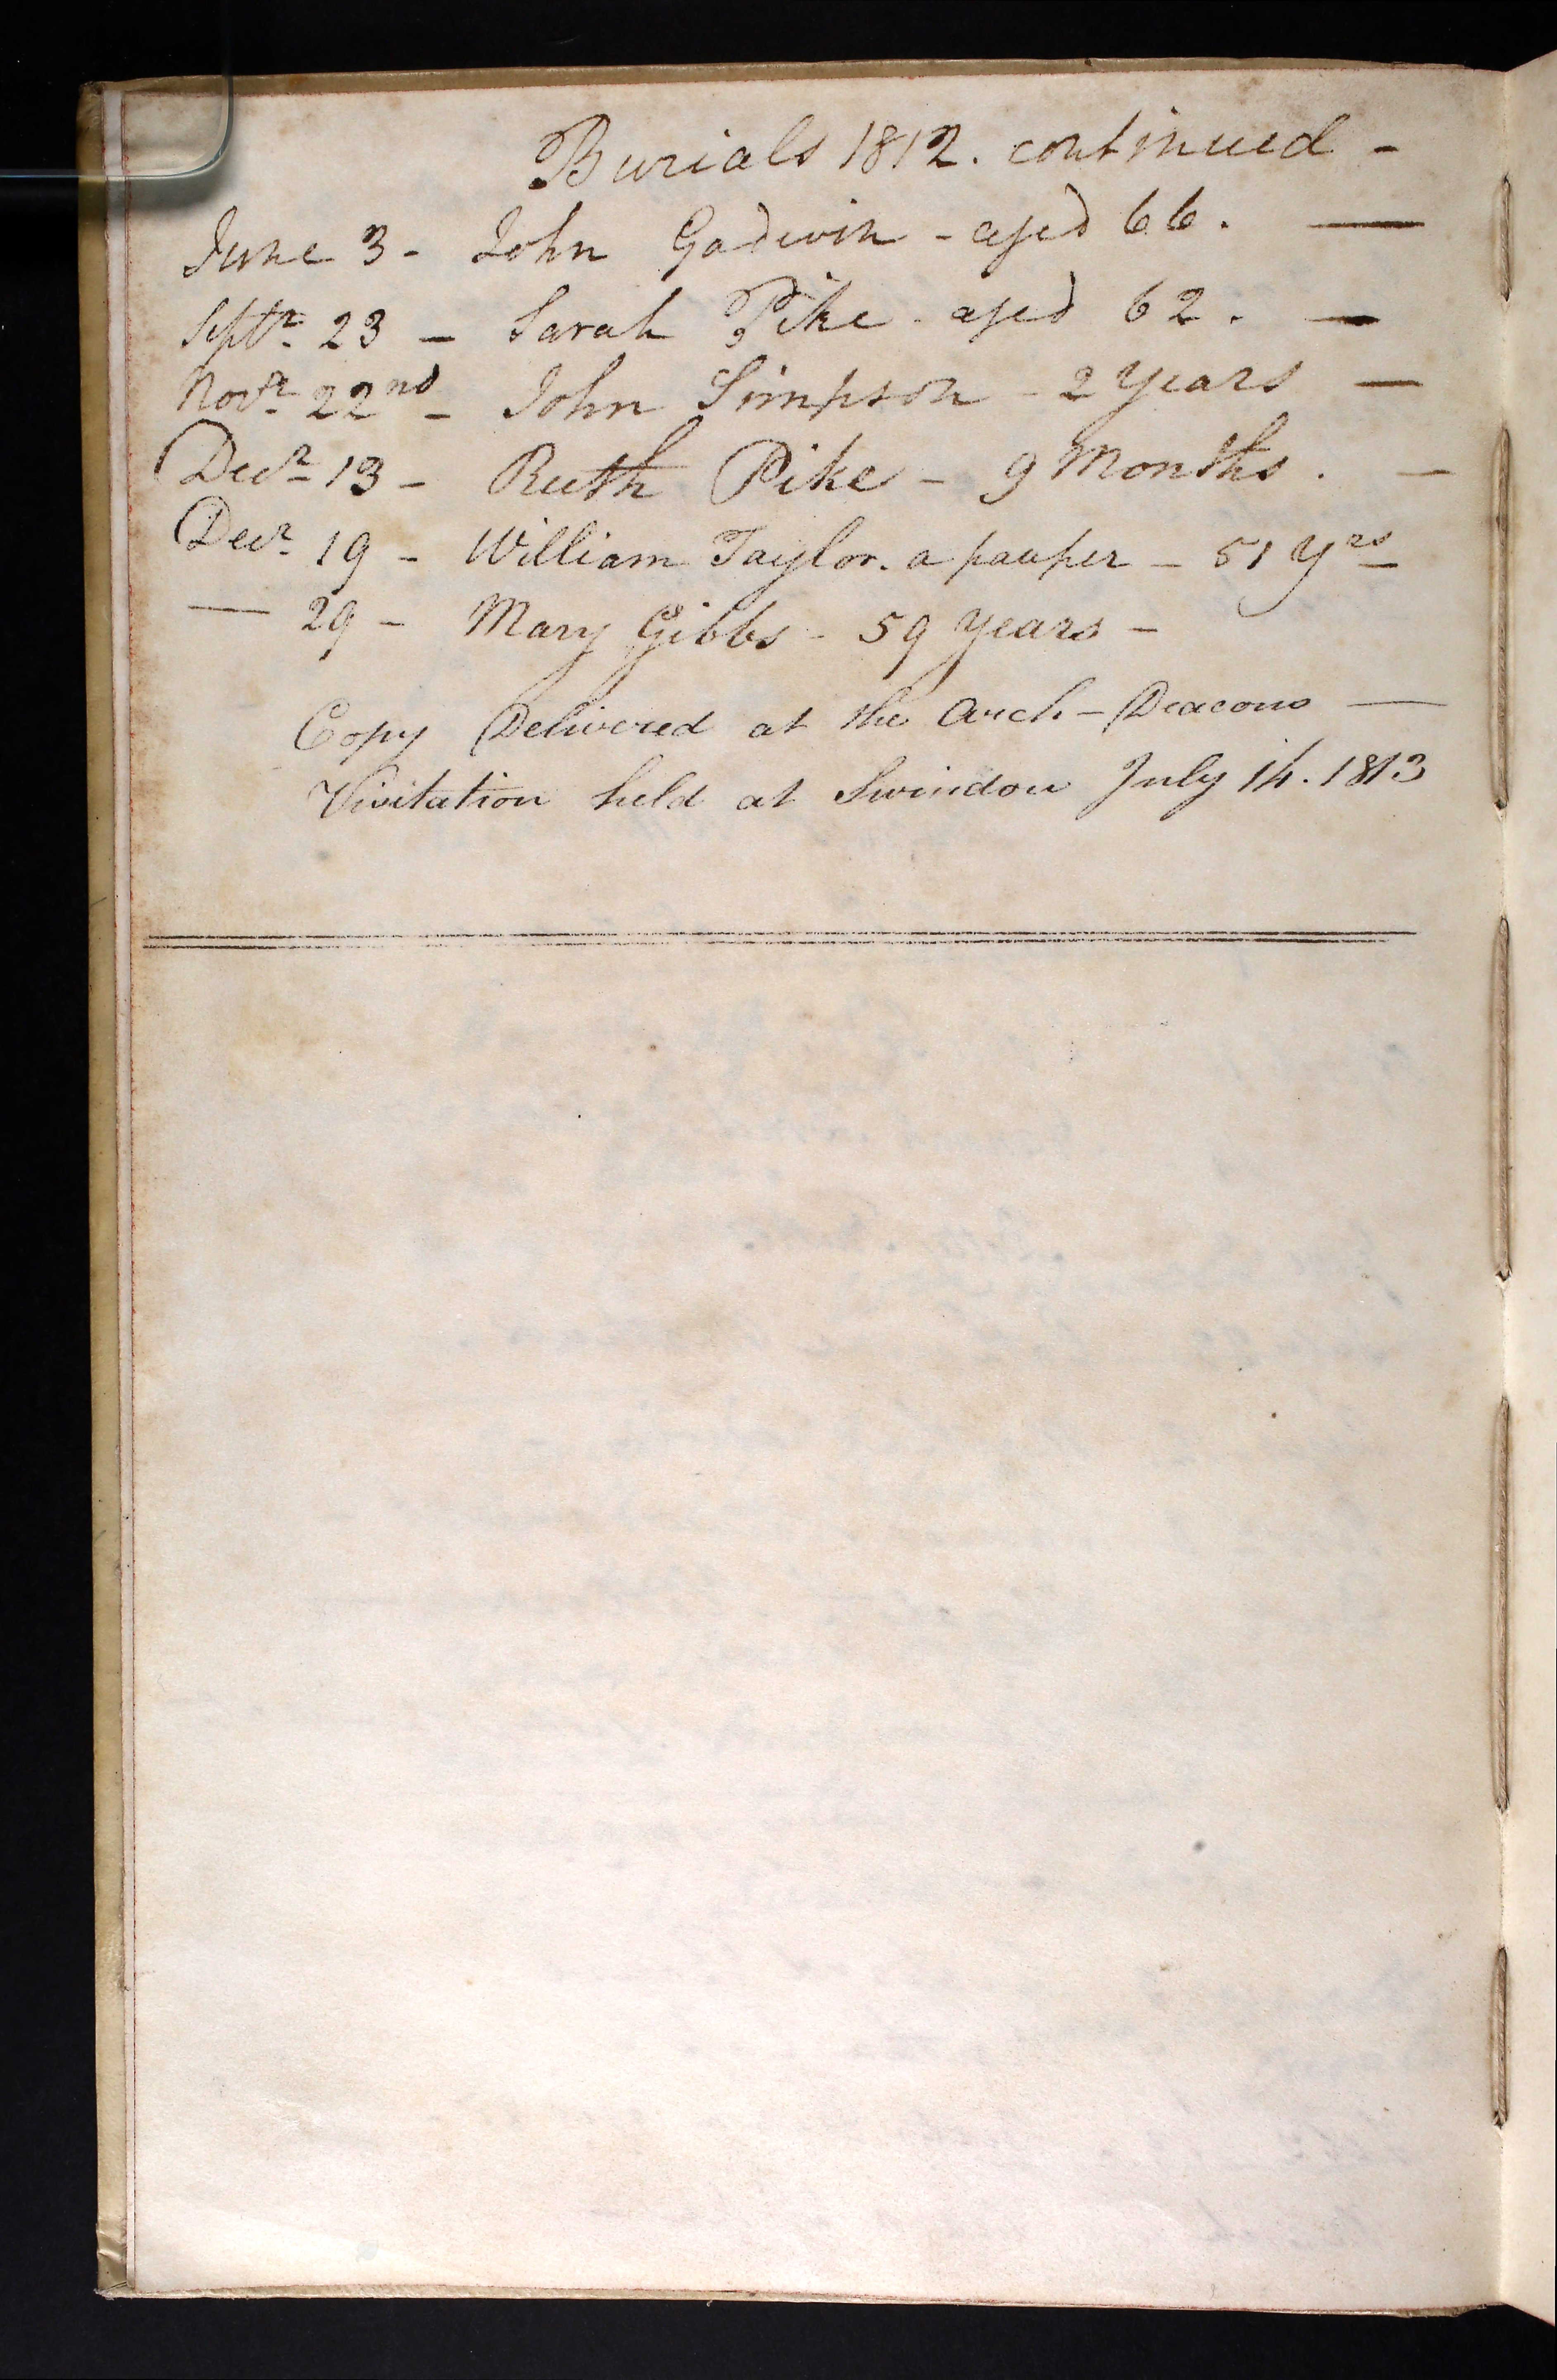 Burials 1812. continued -
June 3 - John Godwin - aged 66. —
Septr. 23 - Sarah Pike - aged 62. —
Novr. 22nd - John Simpson - 2 Years —
Decr. 13 - Ruth Pike - 9 Months. —
Decr. 19 - William Taylor. a pauper - 51 Yrs
— 29 - Mary Gibbs - 59 Years -
Copy Delivered at the Arch-Deacons —
Visitation held at Swindon July 14. 1813